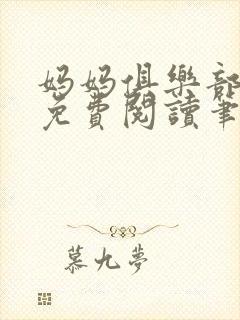 媽媽俱樂部
免費閱讀筆
慕九夢